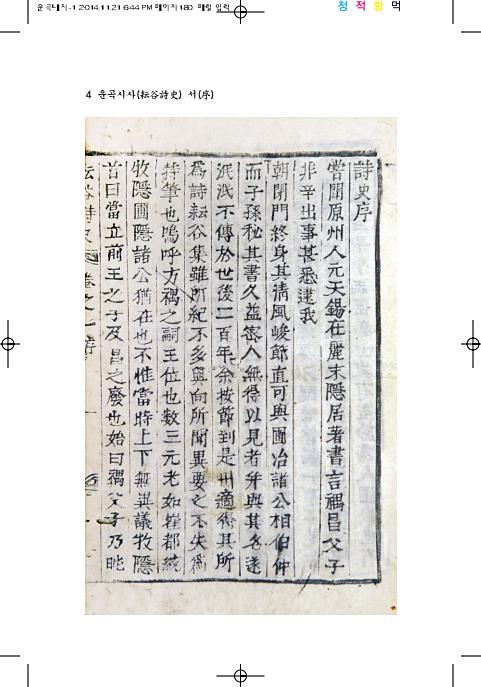 운곡대지-1 2014.11.21 6:44 PM 페이지180 매킨 인력
청 적 황 먹
4 운곡시사(耘谷詩史) 서(序)
詩史序
嘗聞原州人元天錫在麗末隱居著書言禑昌父子
非辛出事甚悉逮我
朝閉門終身其淸風峻節直可與圃冶諸公相伯仲
而子孫秘其書久益密人無得以見者幷與其名遂
泯泯不傳於世後二百年余按節到是州適得其所
爲詩耘谷集雖所紀不多與向所聞異要之不失爲
持筆也嗚呼方禑之嗣王位也數三元老如崔都統
牧隱圃隱諸公猶在也不惟當時上下無異議牧隱
昔曰當立前王之子及昌之廢也始曰禑父子乃旽
耘谷詩史 卷之一序